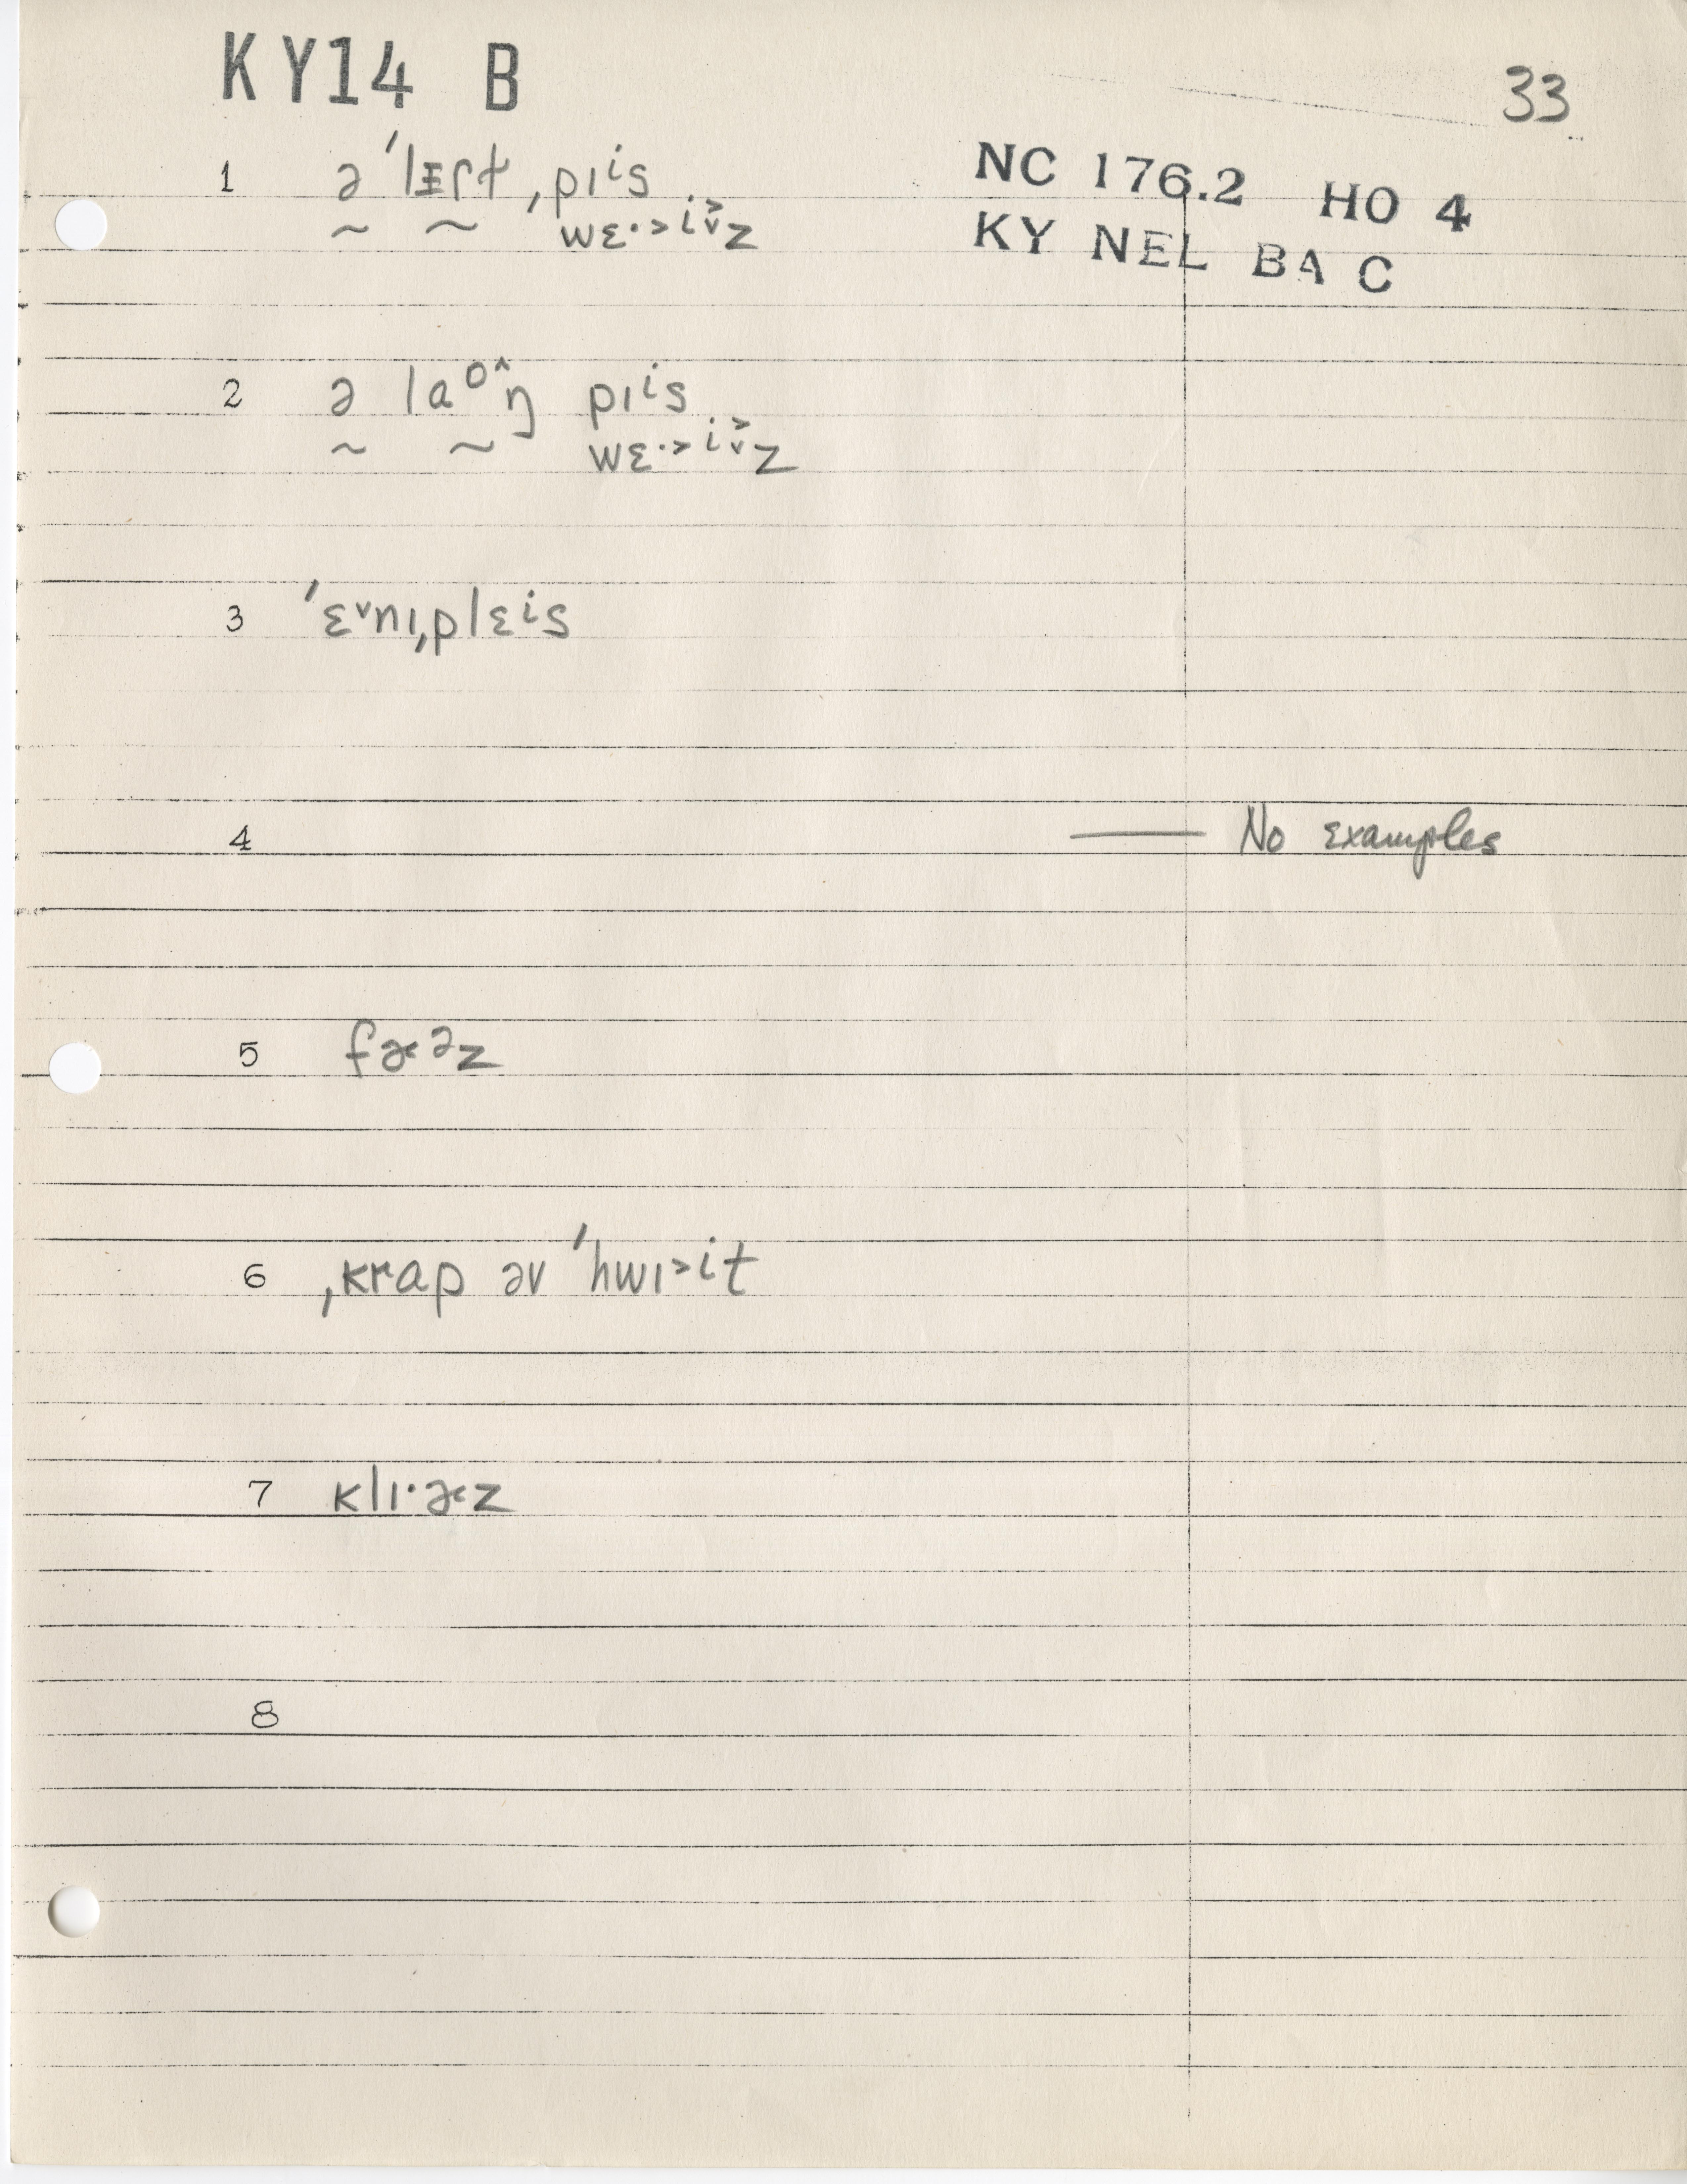 KY14 B
33
NC 176.2 HO 4
KY NEL BA C
1 ə ˈlɪɾt ˌpɪⁱs
~ ~ wɛ·˃ iᵛ̌z
2 ə laᵒ^ŋ pɪⁱs
~ ~ wɛ·˃ iᵛ̌z
3 ˈɛ˅nɪˌplɛis
4 —— No examples
5 fɚᵊz
6 ˌkrap əv ˈhwɪ˃it
7 klɪ·ɚz
8